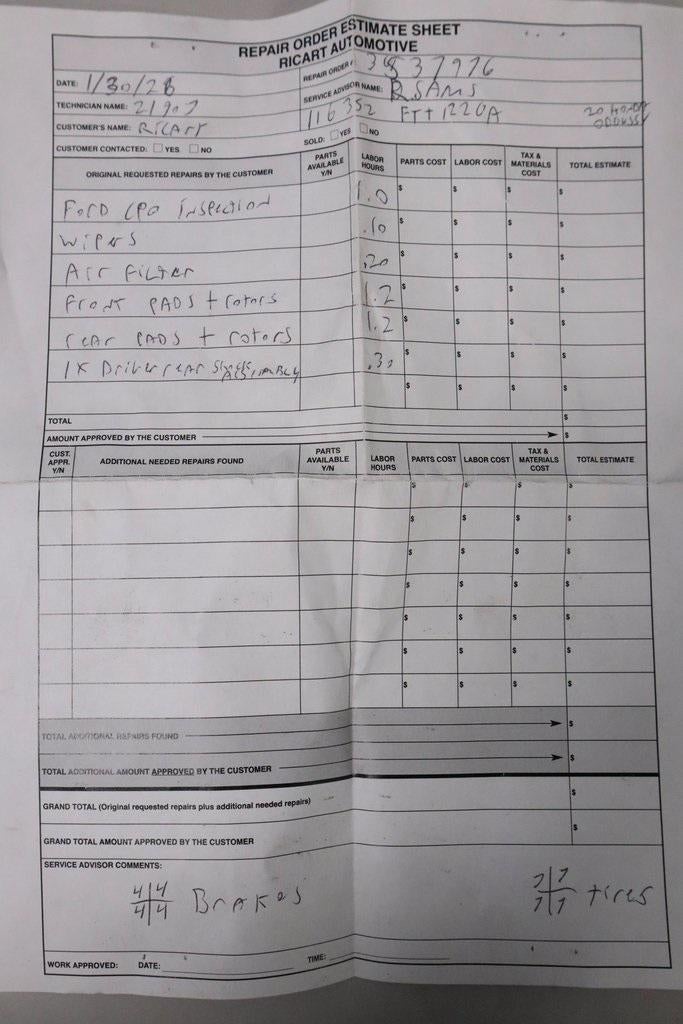 REPAIR ORDER ESTIMATE SHEET
RICART AUTOMOTIVE
DATE: 1/30/26 REPAIR ORDER #
TECHNICIAN NAME: 21907 SERVICE ADVISOR NAME: RSAMS
CUSTOMER'S NAME: Ricart 116352 FTT1220A 20 HONDA ODDYSSY
CUSTOMER CONTACTED: ☐ YES ☐ NO SOLD: ☐ YES ☐ NO
ORIGINAL REQUESTED REPAIRS BY THE CUSTOMER PARTS AVAILABLE Y/N LABOR HOURS PARTS COST LABOR COST TAX & MATERIALS COST TOTAL ESTIMATE
Ford CPO inspection 1.0 $ $ $ $
wipers .10 $ $ $ $
Air Filter .20 $ $ $ $
Front PADS + rotors 1.2 $ $ $ $
rear PADS + rotors 1.2 $ $ $ $
1X Driver rear Assembly .30 $ $ $ $
$ $ $ $
TOTAL $
AMOUNT APPROVED BY THE CUSTOMER $
CUST. APPR. Y/N ADDITIONAL NEEDED REPAIRS FOUND PARTS AVAILABLE Y/N LABOR HOURS PARTS COST LABOR COST TAX & MATERIALS COST TOTAL ESTIMATE
$ $ $ $
$ $ $ $
$ $ $ $
$ $ $ $
$ $ $ $
$ $ $ $
$ $ $ $
TOTAL ADDITIONAL REPAIRS FOUND $
TOTAL ADDITIONAL AMOUNT APPROVED BY THE CUSTOMER $
GRAND TOTAL (Original requested repairs plus additional needed repairs) $
GRAND TOTAL AMOUNT APPROVED BY THE CUSTOMER $
SERVICE ADVISOR COMMENTS:
4 4 7 7
4 4 Brakes 7 7 tires
WORK APPROVED: DATE: TIME: